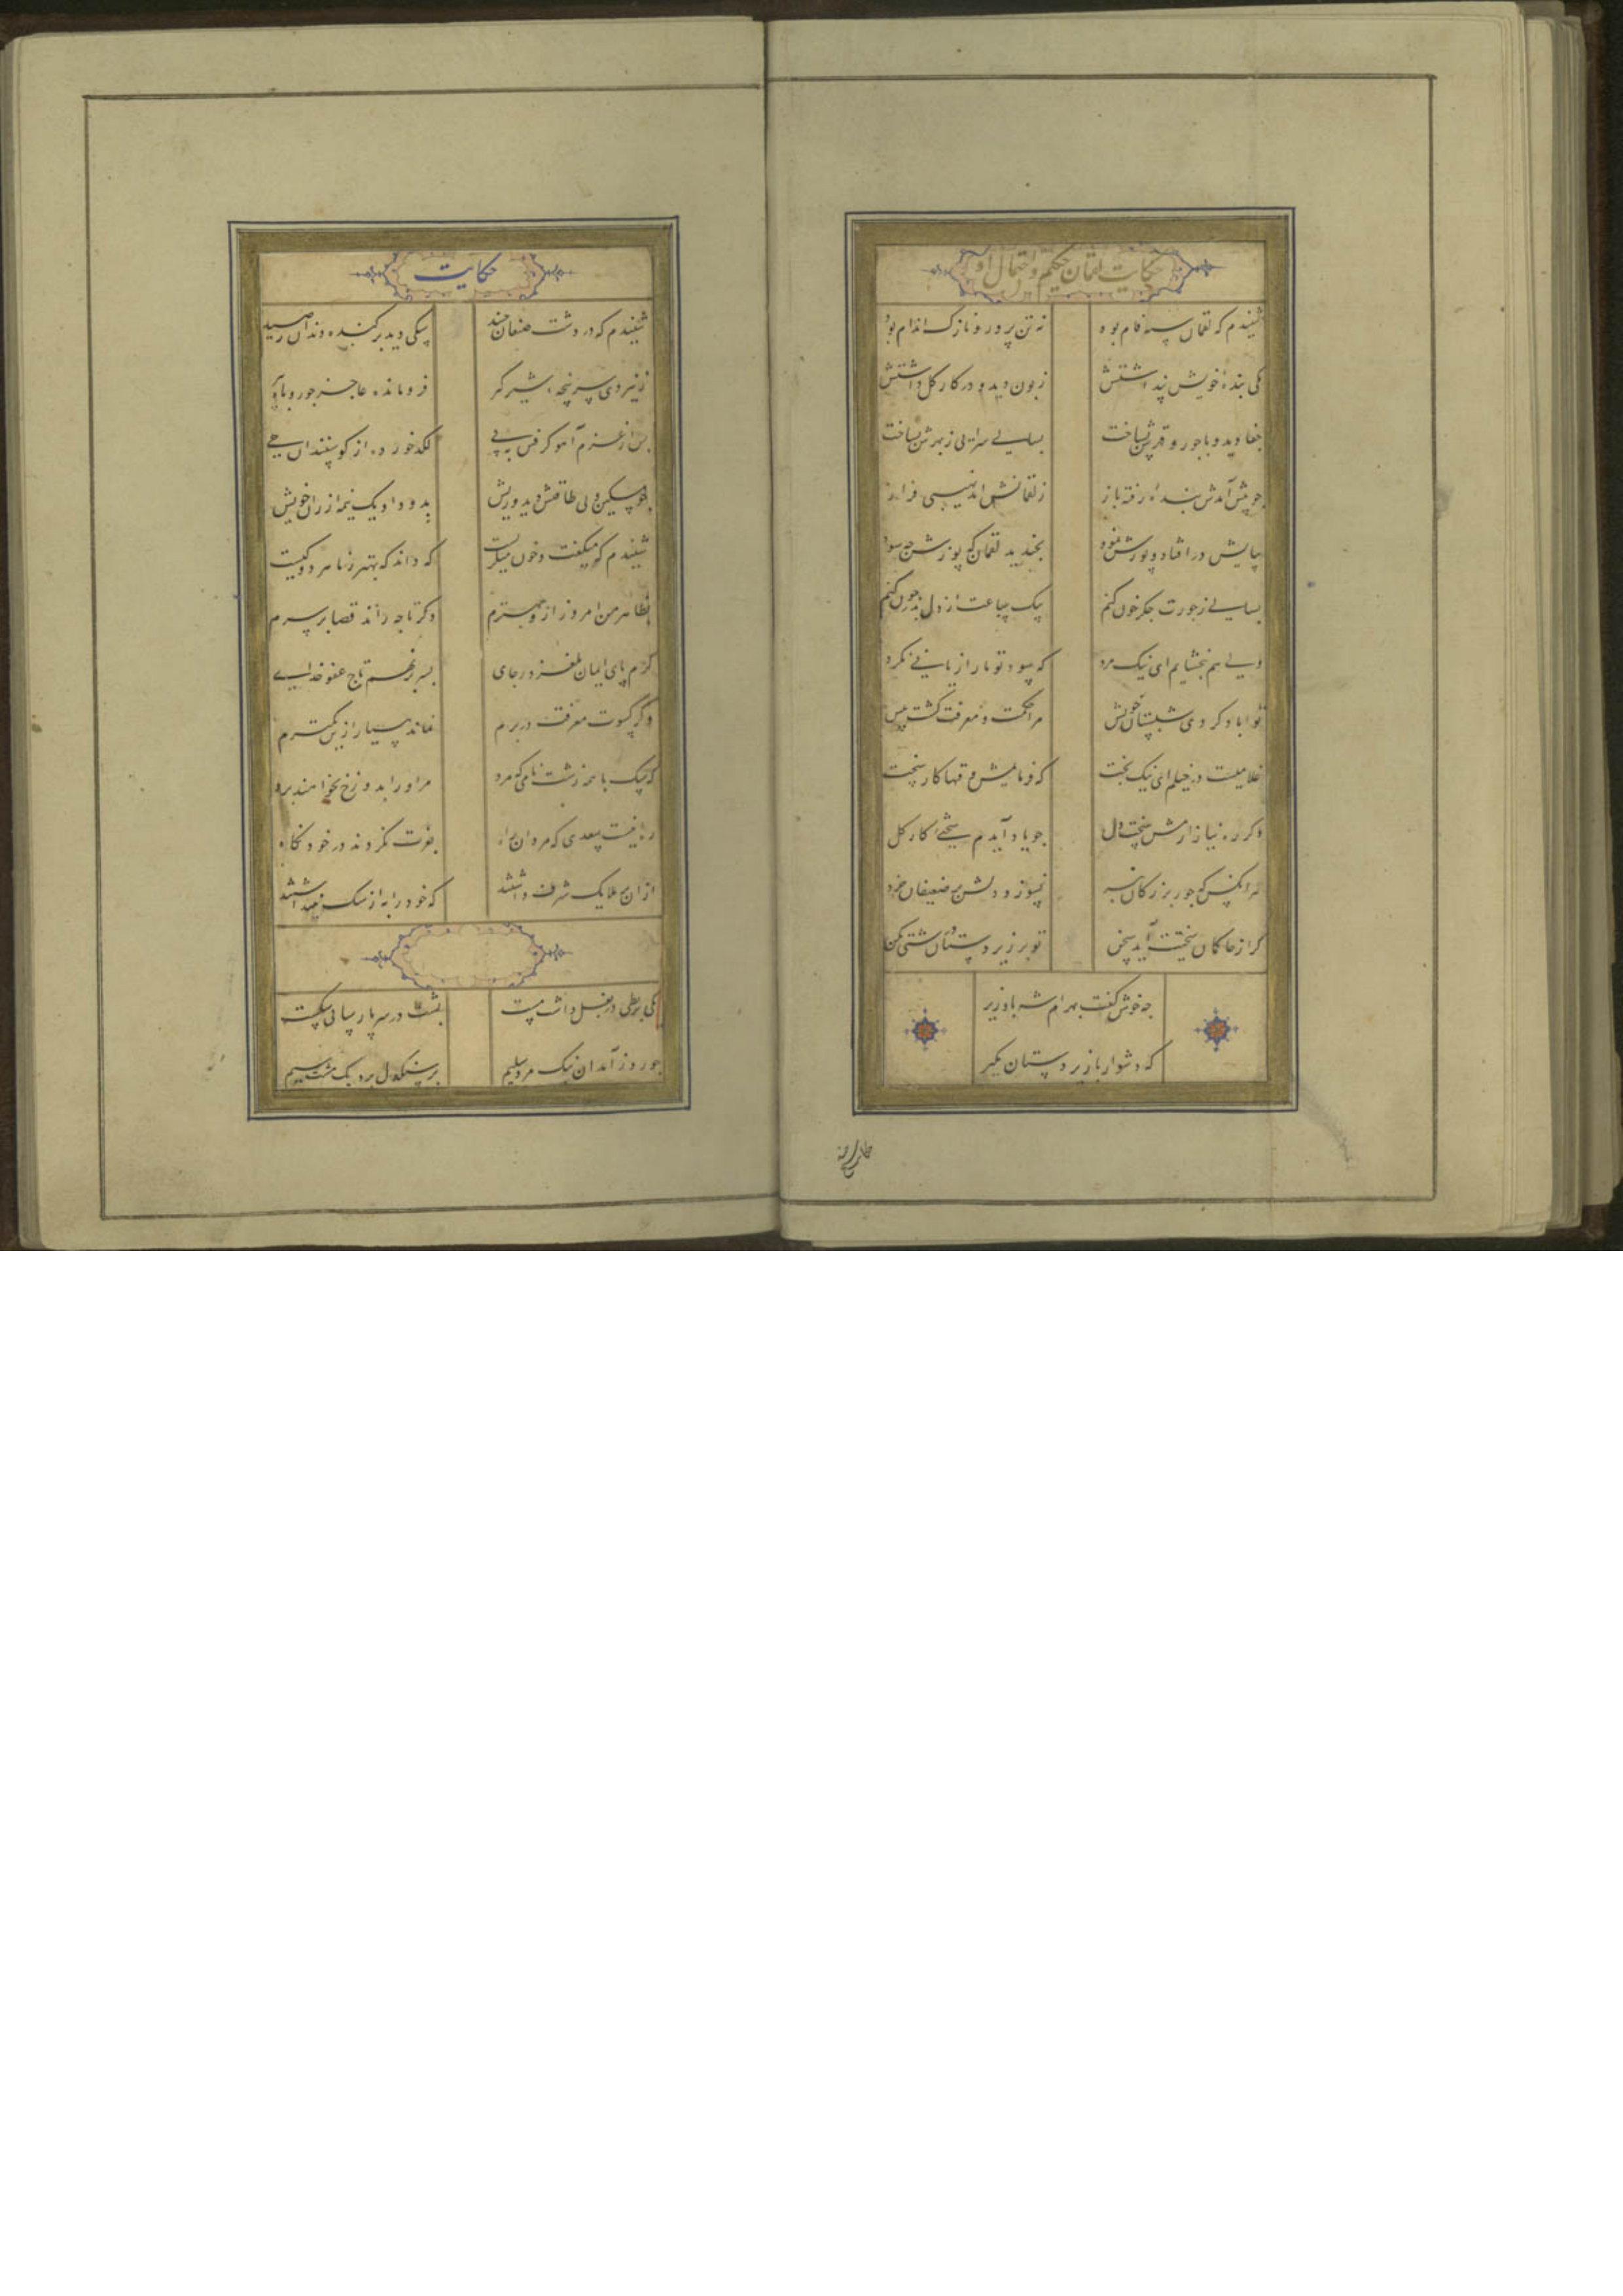 حکایت لقمان حکیم و احتمال او
شنیدم که لقمان سیه فام بود نه تن پرور و نازک اندام بود
یکی بندهٔ خویش پنداشتش زبون دید و در کار گل داشتش
جفا دید و با جور و قهرش بساخت بسالی سرایی ز بهرش بساخت
چو پیش آمدش بندهٔ رفته باز ز لقمانش آمد نهیبی فراز
بپایش در افتاد و پوزش نمود بخندید لقمان که پوزش چه سود
بسالی ز جورت جگر خون کنم بیک ساعت از دل بدر چون کنم
ولی هم ببخشایم ای نیک مرد که سود تو ما را زیانی نکرد
تو آباد کردی شبستان خویش مرا حکمت و معرفت گشت بیش
غلامیست در خیلم ای نیک بخت که فرمایمش وقتها کار سخت
دگر ره نیازارمش سخت دل چو یاد آیدم سختی کار گل
هر آنکس که جور بزرگان نبرد نسوزد دلش بر ضعیفان خرد
گر از حاکمان سختت آید سخن تو بر زیر دستان درشتی مکن
چه خوش گفت بهرام شه با وزیر
که دشوار با زیر دستان مگیر
حکایت
شنیدم که در دشت صنعا جنید سگی دید بر کنده دندان صید
ز نیروی سر پنجهٔ شیر گیر فرومانده عاجز چو روباه پیر
پس از غرم آهو گرفتن به پی لگد خورده از گوسپندان حی
چو مسکین و بی طاقتش دید و ریش بدو داد یک نیمه از زاد خویش
شنیدم که میگفت و خون میگریست که داند که بهتر ز ما هر دو کیست
بظاهر من امروز ازو بهترم دگر تا چه راند قضا بر سرم
گرم پای ایمان نلغزد ز جای بسر بر نهم تاج عفو خدای
وگر کسوت معرفت در برم نماند به بسیار ازین کمترم
که سگ با همه زشت نامی که مرد مر او را بدوزخ نخواهند برد
ره اینست سعدی که مردان راه بعزت نکردند در خود نگاه
از آن بر ملایک شرف داشتند که خود را به از سگ نپنداشتند
یکی بربطی در بغل داشت مست بشب در سر پارسایی شکست
چو روز آمد آن نیک مرد سلیم بر سنگدل برد یک مشت سیم